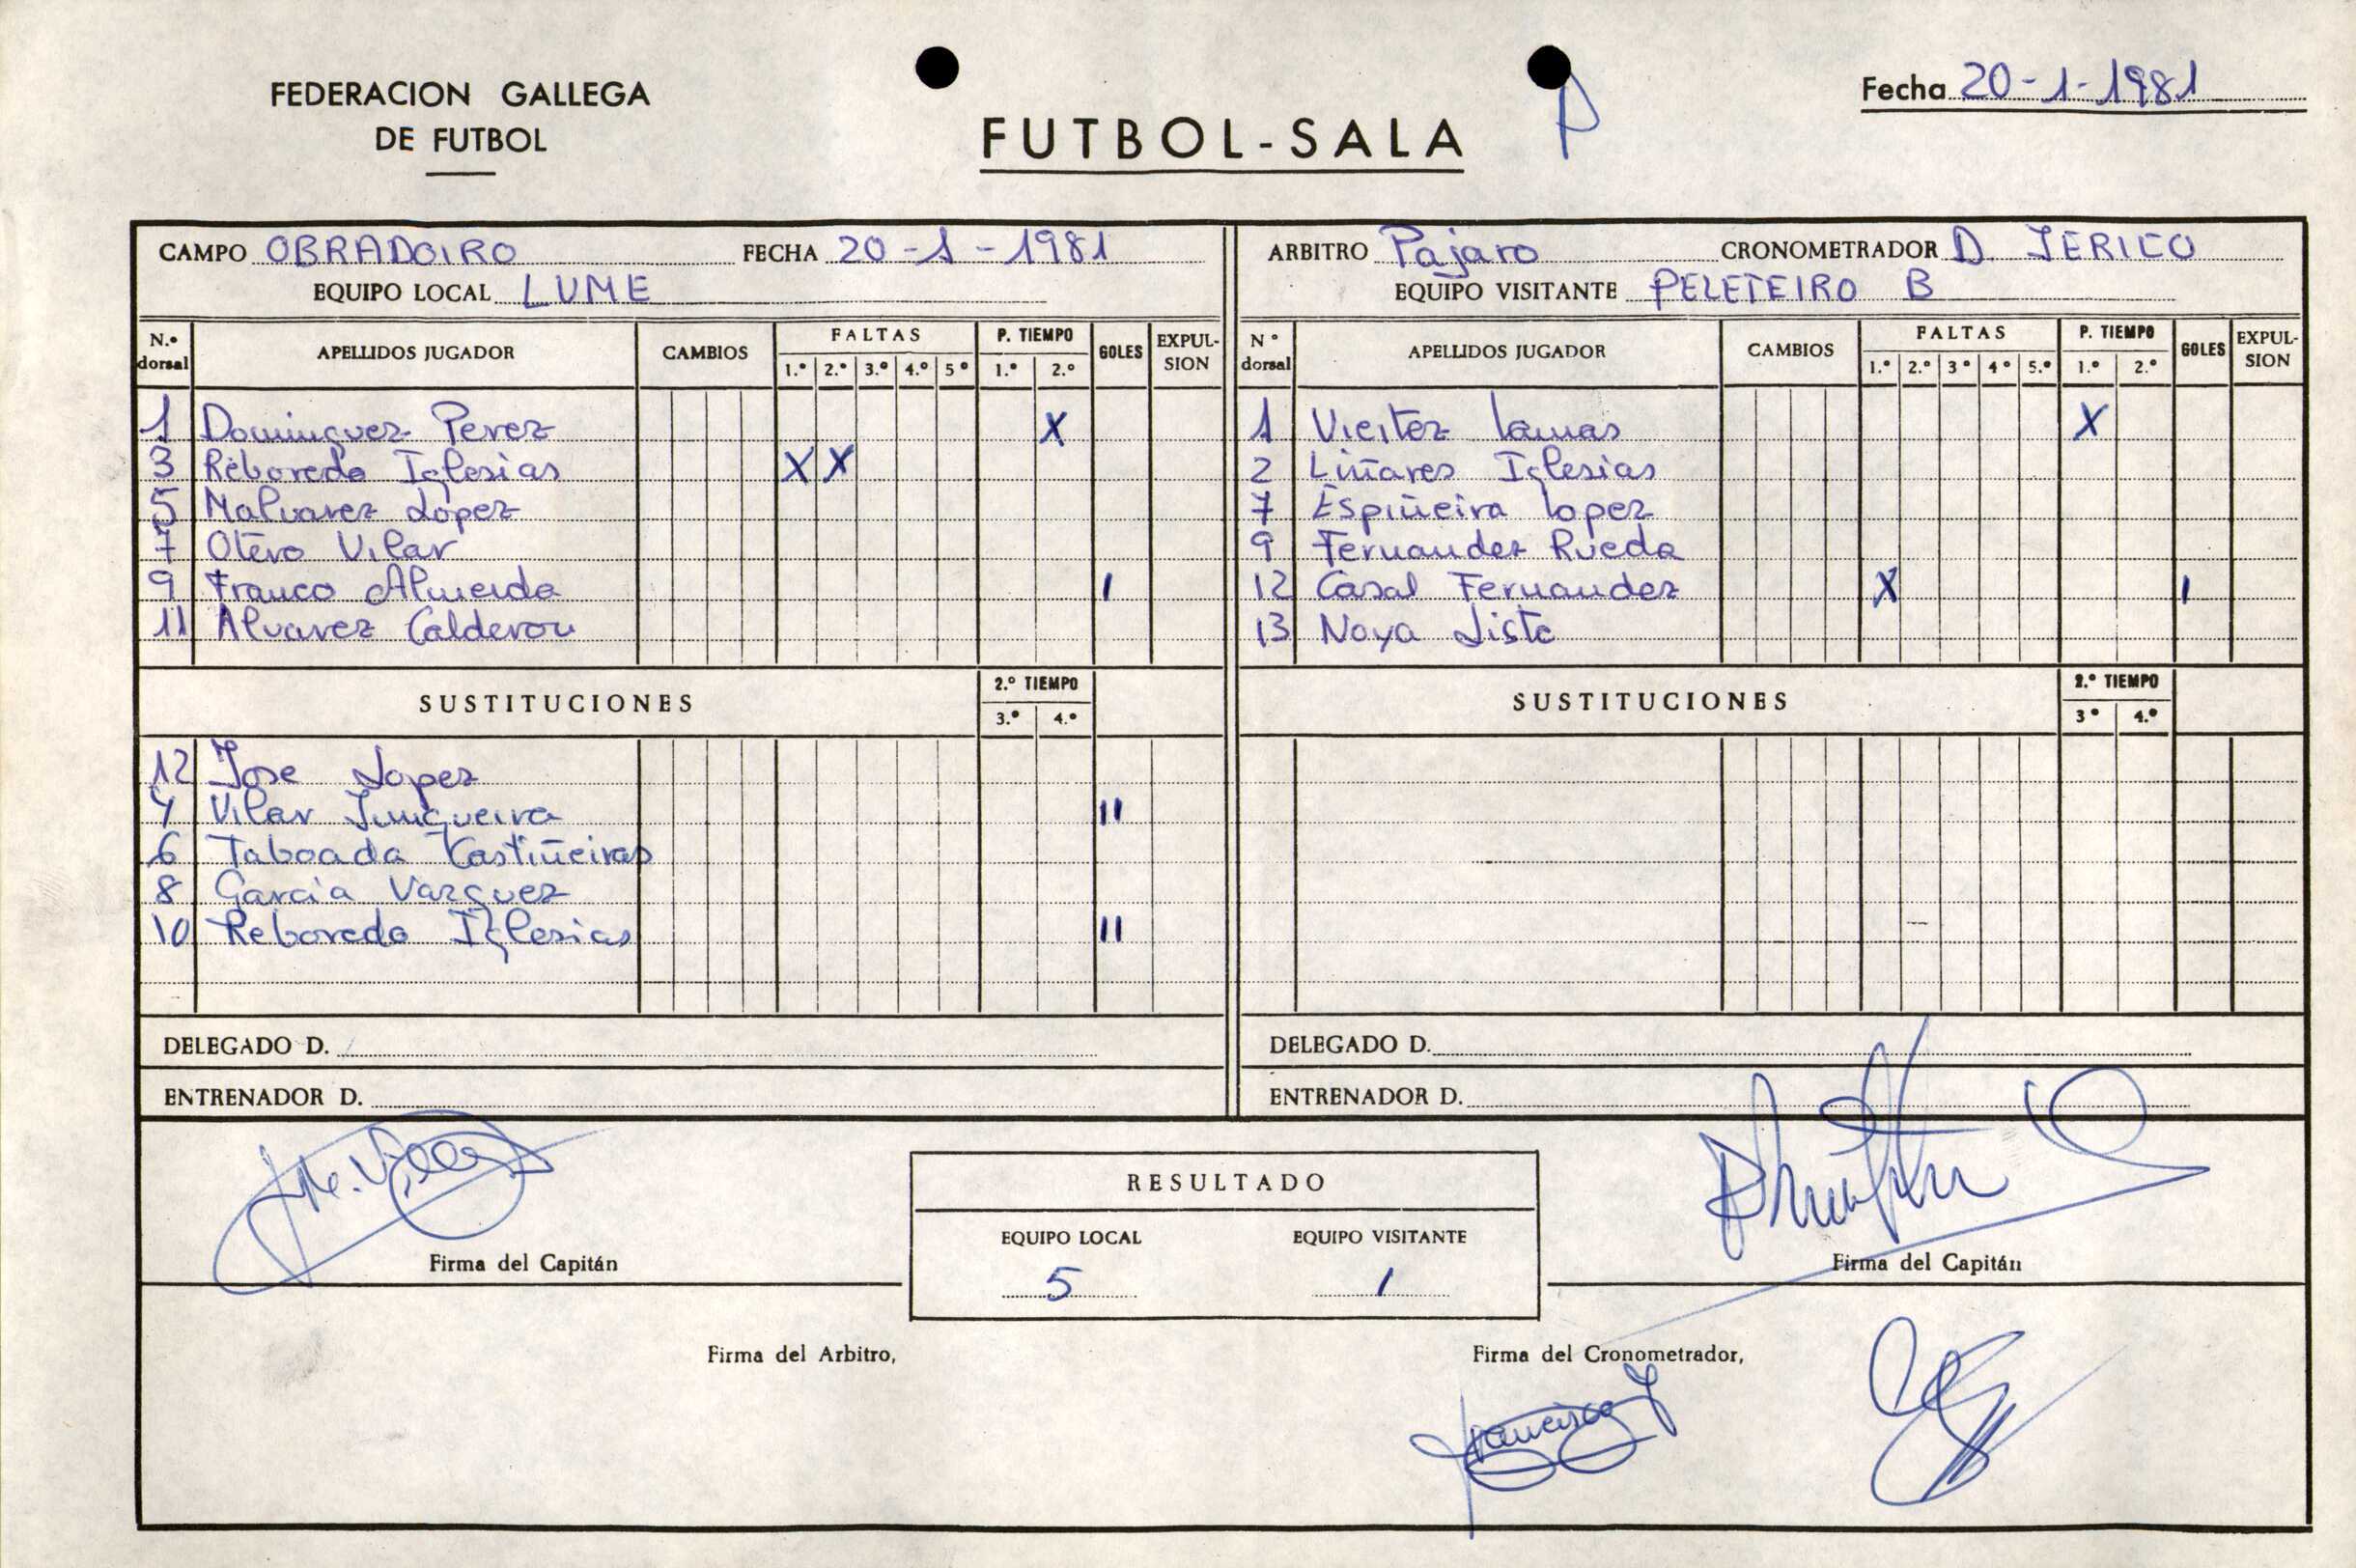 FEDERACION GALLEGA
DE FUTBOL
FUTBOL-SALA
P
Fecha 20-1-1981
CAMPO OBRADOIRO FECHA 20-1-1981
EQUIPO LOCAL LUME
ARBITRO Pajaro CRONOMETRADOR D. JERICO
EQUIPO VISITANTE PELETEIRO B
N.º dorsal APELLIDOS JUGADOR CAMBIOS FALTAS 1.º 2.º 3.º 4.º 5º P. TIEMPO 1.º 2.º GOLES EXPUL-SION
1 Dominguez Perez X
3 Reboredo Iglesias X X
5 Malvarez Lopez
7 Otero Vilar
9 Franco Almeida I
11 Alvarez Calderon
SUSTITUCIONES 2.º TIEMPO 3.º 4.º
12 Jose Lopez
4 Vilar Junqueira II
6 Taboada Castiñeiras
8 Garcia Vazquez
10 Reboredo Iglesias II
DELEGADO D.
ENTRENADOR D.
N º dorsal APELLIDOS JUGADOR CAMBIOS FALTAS 1.º 2.º 3º 4º 5.º P. TIEMPO 1.º 2.º GOLES EXPUL-SION
1 Vieitez Lamas X
2 Liñares Iglesias
7 Espiñeira Lopez
9 Fernandez Rueda
12 Casal Fernandez X I
13 Noya Liste
SUSTITUCIONES 2.º TIEMPO 3º 4.º
DELEGADO D.
ENTRENADOR D.
Firma del Capitán
RESULTADO
EQUIPO LOCAL EQUIPO VISITANTE
5 1
Firma del Capitán
Firma del Arbitro,
Firma del Cronometrador,
Francisco J